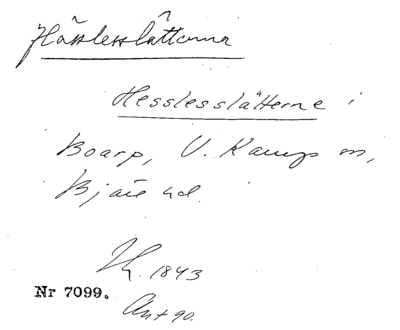 Hässlesslättarna
Hesslesslätterne i
Boarp, V. Karups sn,
Bjäre hd.
1843
Nr 7099.
Akt 90.